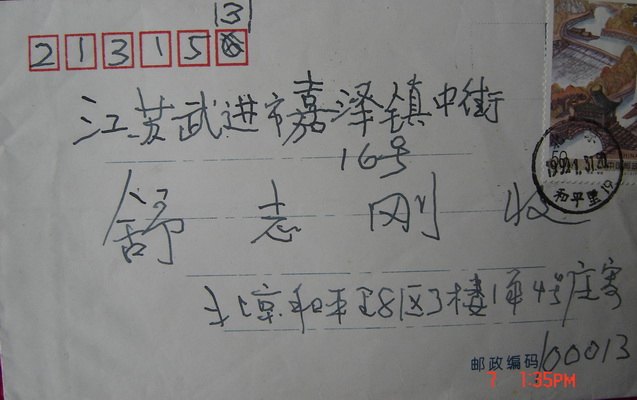 3
213150
江苏武进市嘉泽镇中街
16号
舒志刚 收
北京和平里8区3楼1单4号庄寄
邮政编码100013
1:35PM
和平里
19